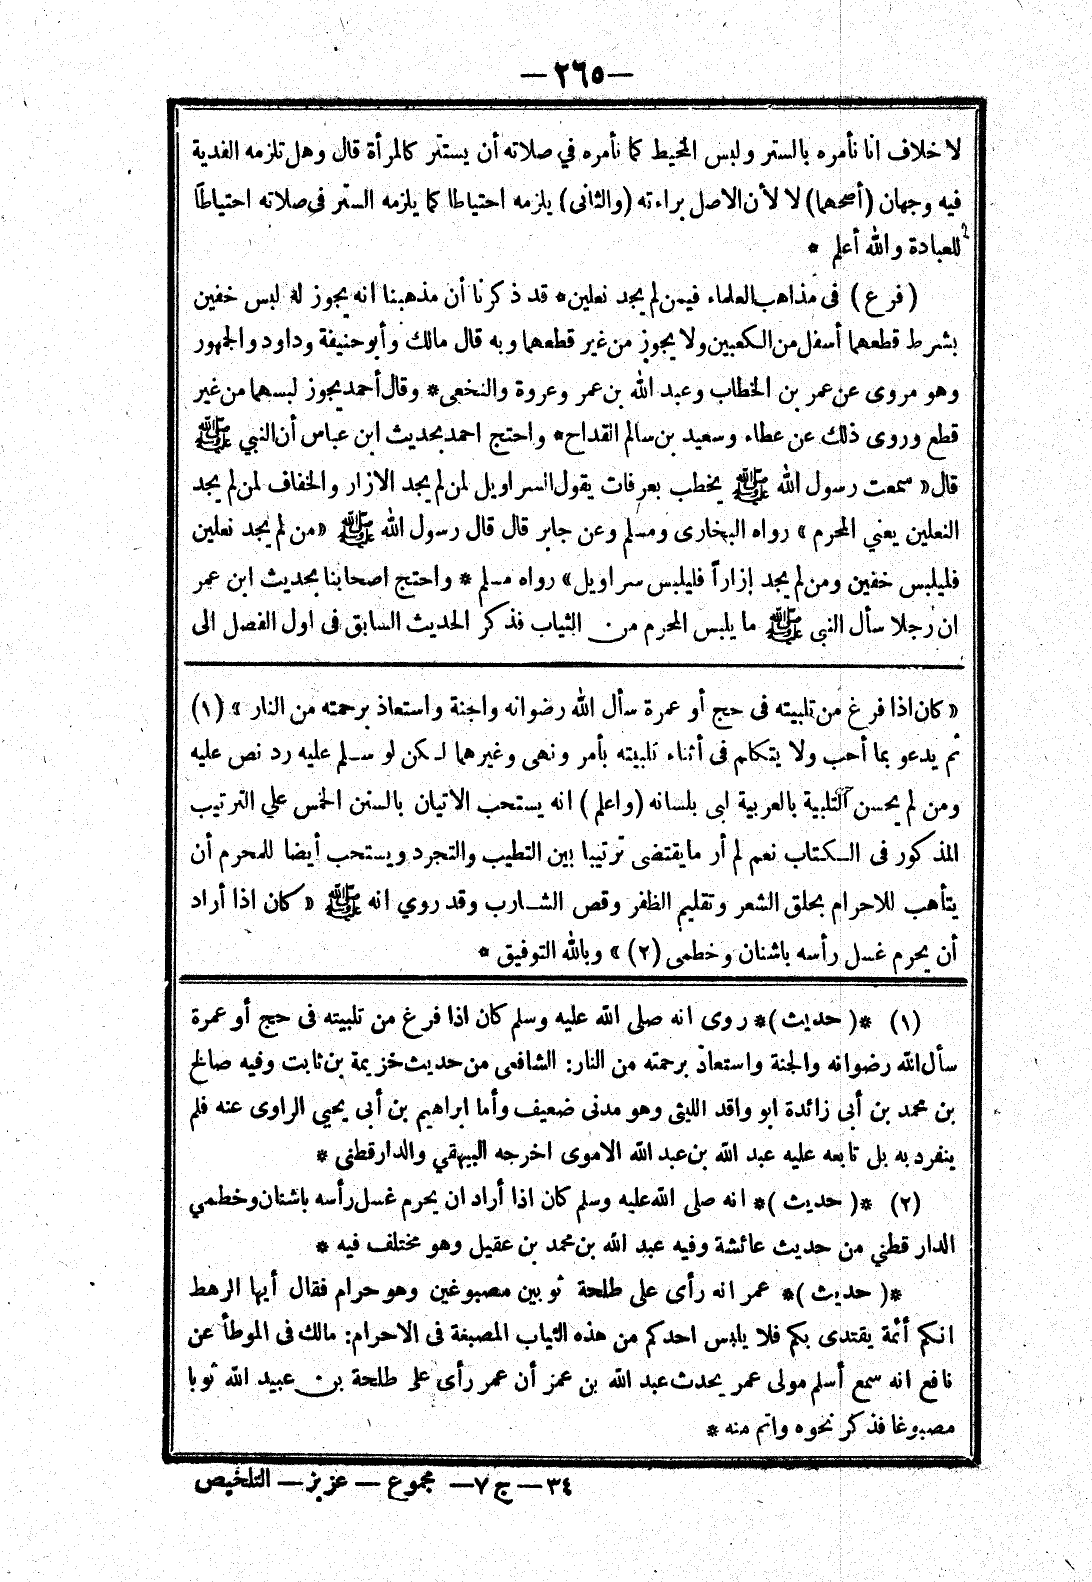 — ٢٦٥ —
لا خلاف انا نأمره بالستر ولبس المخيط كما نأمره في صلاته أن يستتر كالمرأة قال وهل تلزمه الفدية
فيه وجهان (أصحهما) لا لأن الاصل براءته (والثانى) يلزمه احتياطا كما يلزمه الستر فى صلاته احتياطا
للعبادة والله أعلم *
(فرع) فى مذاهب العلماء فيمن لم يجد نعلين* قد ذكرنا أن مذهبنا انه يجوز له لبس خفين
بشرط قطعهما أسفل من الكعبين ولا يجوز من غير قطعهما وبه قال مالك وأبو حنيفة وداود والجمهور
وهو مروى عن عمر بن الخطاب وعبد الله بن عمر وعروة والنخعى* وقال أحمد يجوز لبسهما من غير
قطع وروى ذلك عن عطاء وسعيد بن سالم القداح* واحتج احمد بحديث ابن عباس أن النبي ﷺ
قال « سمعت رسول الله ﷺ يخطب بعرفات يقول السراويل لمن لم يجد الازار والخفاف لمن لم يجد
النعلين يعني المحرم » رواه البخارى ومسلم وعن جابر قال قال رسول الله ﷺ « من لم يجد نعلين
فليلبس خفين ومن لم يجد إزاراً فليلبس سراويل» رواه مسلم * واحتج اصحابنا بحديث ابن عمر
ان رجلا سأل النبى ﷺ ما يلبس المحرم من الثياب فذكر الحديث السابق فى اول الفصل الى
« كان اذا فرغ من تلبيته فى حج أو عمرة سأل الله رضوانه واجنة واستعاذ برحمته من النار » (١)
ثم يدعو بما أحب ولا يتكلم فى أثناء تلبيته بأمر ونهى وغيرهما لكن لو سلم عليه رد نص عليه
ومن لم يحسن التلبية بالعربية لبى بلسانه (واعلم) انه يستحب الأتيان بالسنن الخمس علي الترتيب
المذكور فى الكتاب نعم لم أر ما يقتضى ترتيبا بين التطيب والتجرد ويستحب أيضا للمحرم أن
يتأهب للاحرام بحلق الشعر وتقليم الظفر وقص الشارب وقد روي انه ﷺ « كان اذا أراد
أن يحرم غسل رأسه باشنان وخطمى (٢) » وبالله التوفيق *
(١) *( حديث )* روى انه صلى الله عليه وسلم كان اذا فرغ من تلبيته فى حج أو عمرة
سأل الله رضوانه والجنة واستعاذ برحمته من النار: الشافعى من حديث خزيمة بن ثابت وفيه صالح
بن محمد بن أبى زائدة ابو واقد الليثى وهو مدنى ضعيف وأما ابراهيم بن أبى يحيى الراوى عنه فلم
ينفرد به بل تابعه عليه عبد الله بن عبد الله الاموى اخرجه البيهقي والدارقطنى *
(٢) *( حديث )* انه صلى الله عليه وسلم كان اذا أراد ان يحرم غسل رأسه باشنان وخطمي
الدار قطني من حديث عائشة وفيه عبد الله بن محمد بن عقيل وهو مختلف فيه *
*( حديث )* عمر انه رأى على طلحة ثوبين مصبوغين وهو حرام فقال أيها الرهط
انكم أئمة يقتدى بكم فلا يلبس احدكم من هذه الثياب المصبغة فى الاحرام: مالك فى الموطأ عن
نافع انه سمع أسلم مولى عمر يحدث عبد الله بن عمر أن عمر رأى على طلحة بن عبيد الله ثوبا
مصبوغا فذكر نحوه واتم منه *
٣٤ — ج ٧ — مجموع — عزيز — التلخيص